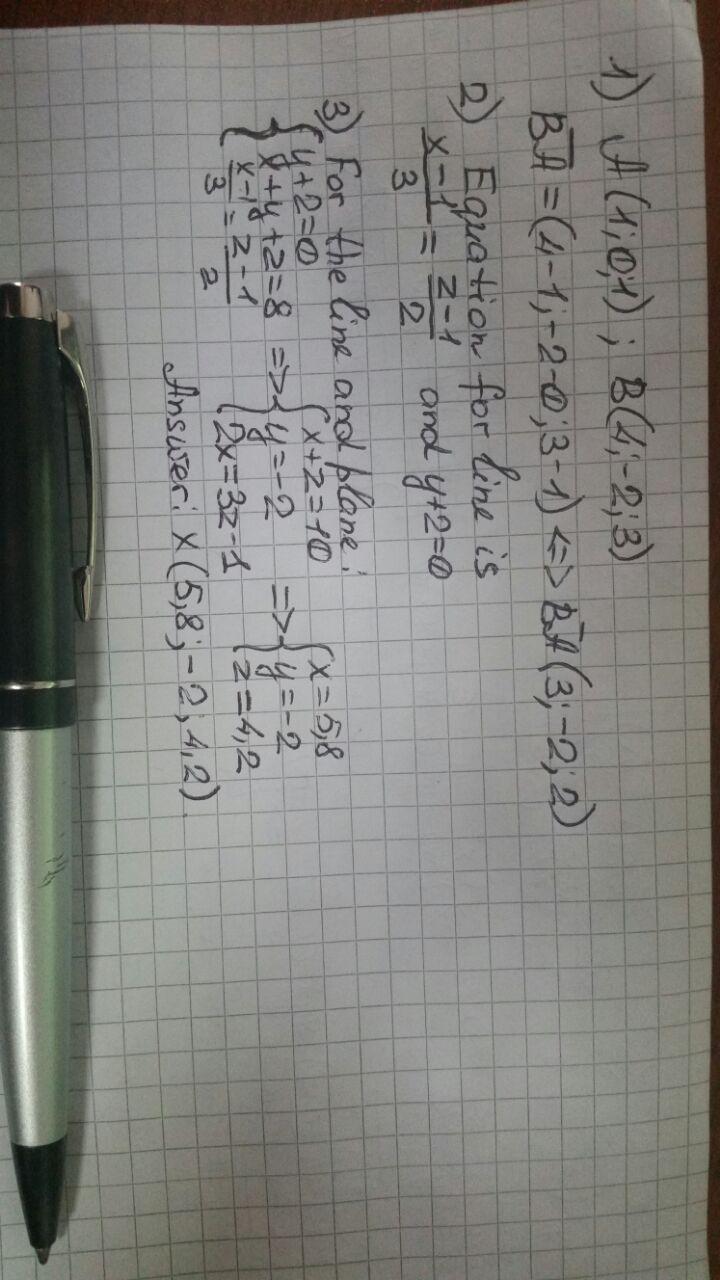 1) A(1;0;1); B(4;-2;3)
BA=(4-1;-2-0;3-1) <=> BA(3;-2;2)
2) Equation for line is
x-1/3 = z-1/2 and y+2=0
3) For the line and plane:
{y+2=0 {x+z=10 {x=5,8
{x+y+z=8 => {y=-2 => {y=-2
{x-1/3 = z-1/2 {2x=3z-1 {z=4,2
Answer: X(5,8;-2;4,2).